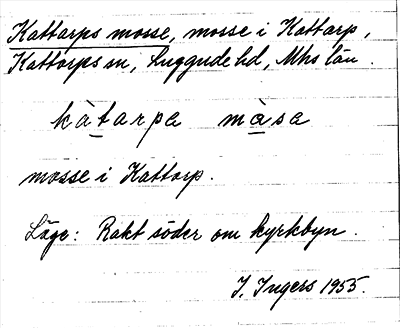 Kattarps mosse, mosse i Kattarp,
Kattarps sn, Luggude hd, Mhs län.
kàtarpa màsa
mosse i Kattarp.
Läge: Rakt söder om kyrkbyn.
I. Ingers 1955.